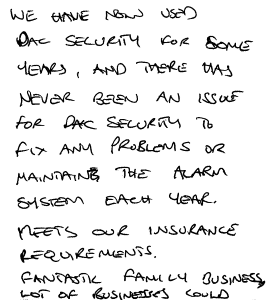 WE HAVE NOW USED
DAC SECURITY FOR SOME
YEARS, AND THERE HAS
NEVER BEEN AN ISSUE
FOR DAC SECURITY TO
FIX ANY PROBLEMS OR
MAINTAING THE ALARM
SYSTEM EACH YEAR.
MEETS OUR INSURANCE
REQUIREMENTS.
FANTASTIC FAMILY BUSINESS,
LOT OF BUSINESSES COULD